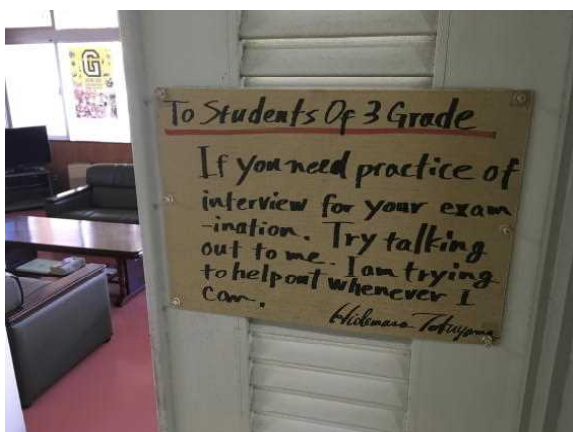 G
To Students Of 3 Grade
If you need practice of
interview for your exam
-ination. Try talking
out to me. I am trying
to help out whenever I
can.
Hidemasa Tokuyama